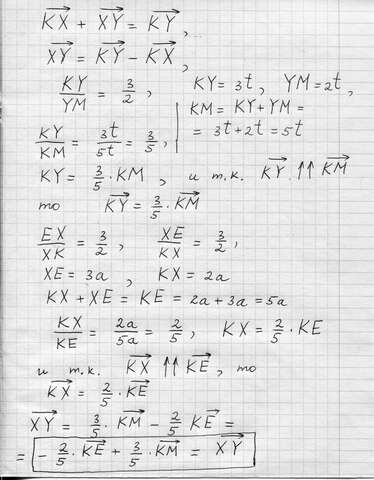 KX⃗ + XY⃗ = KY⃗,
XY⃗ = KY⃗ − KX⃗,
KY/YM = 3/2, KY = 3t, YM = 2t,
KM = KY + YM =
= 3t + 2t = 5t
KY/KM = 3t/5t = 3/5,
KY = 3/5 · KM, и т.к. KY⃗ ↑↑ KM⃗
то KY⃗ = 3/5 · KM⃗
EX/XK = 3/2, XE/KX = 3/2,
XE = 3a, KX = 2a
KX + XE = KE = 2a + 3a = 5a
KX/KE = 2a/5a = 2/5, KX = 2/5 · KE
и т.к. KX⃗ ↑↑ KE⃗, то
KX⃗ = 2/5 · KE⃗
XY⃗ = 3/5 · KM⃗ − 2/5 KE⃗ =
= − 2/5 · KE⃗ + 3/5 · KM⃗ = XY⃗